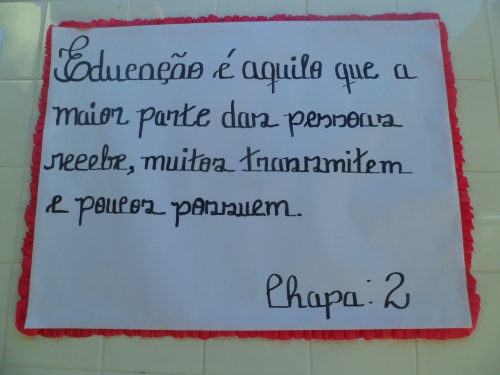 Educação é aquilo que a
maior parte das pessoas
recebe, muitos transmitem
e poucos possuem.
Chapa: 2